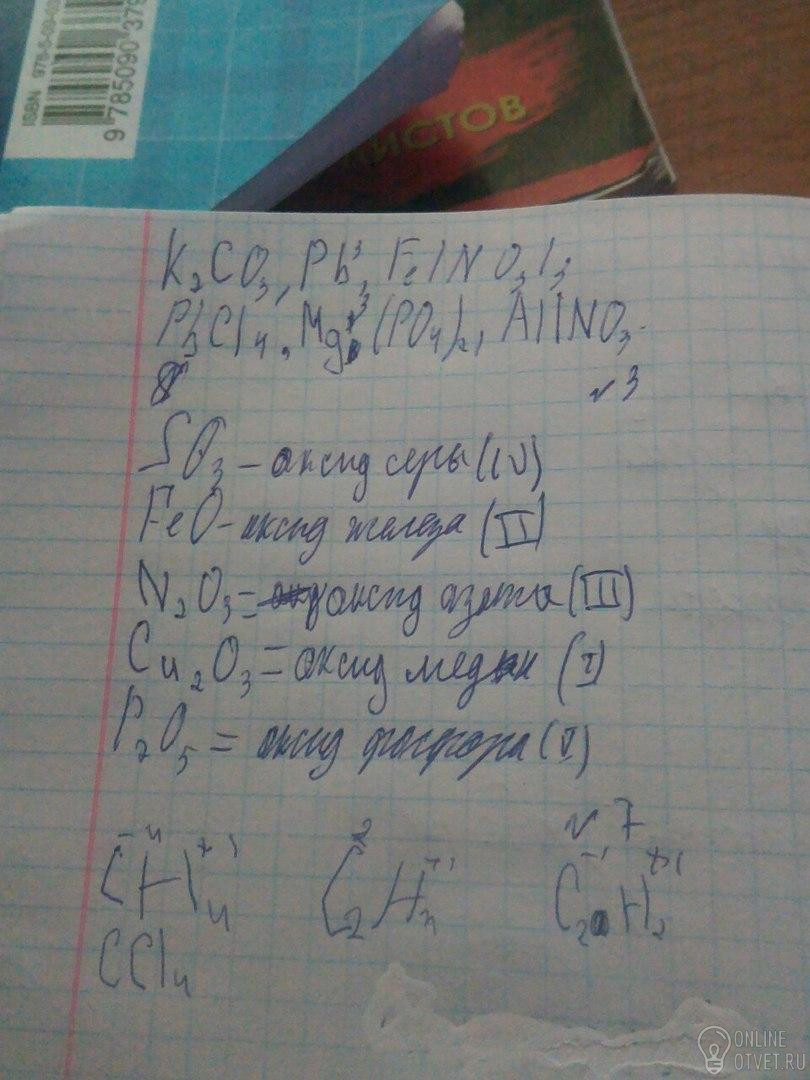 ISBN 978-5-09-0
9 785090 379
ИСТОВ
K₂CO₃, Pb³, Fe(NO₃)₃
PbCl₄, Mg³(PO₄)₂, Al(NO₃
√3
SO₃ - оксид серы (IV)
FeO - оксид железа (II)
N₂O₃ = оксид азота (III)
Cu₂O₃ = оксид меди (I)
P₂O₅ = оксид фосфора (V)
√7
C⁻⁴H⁺¹₄ C²₂H⁺¹₄ C⁻¹₂H⁺¹₂
CCl₄
ONLINE
OTVET.RU